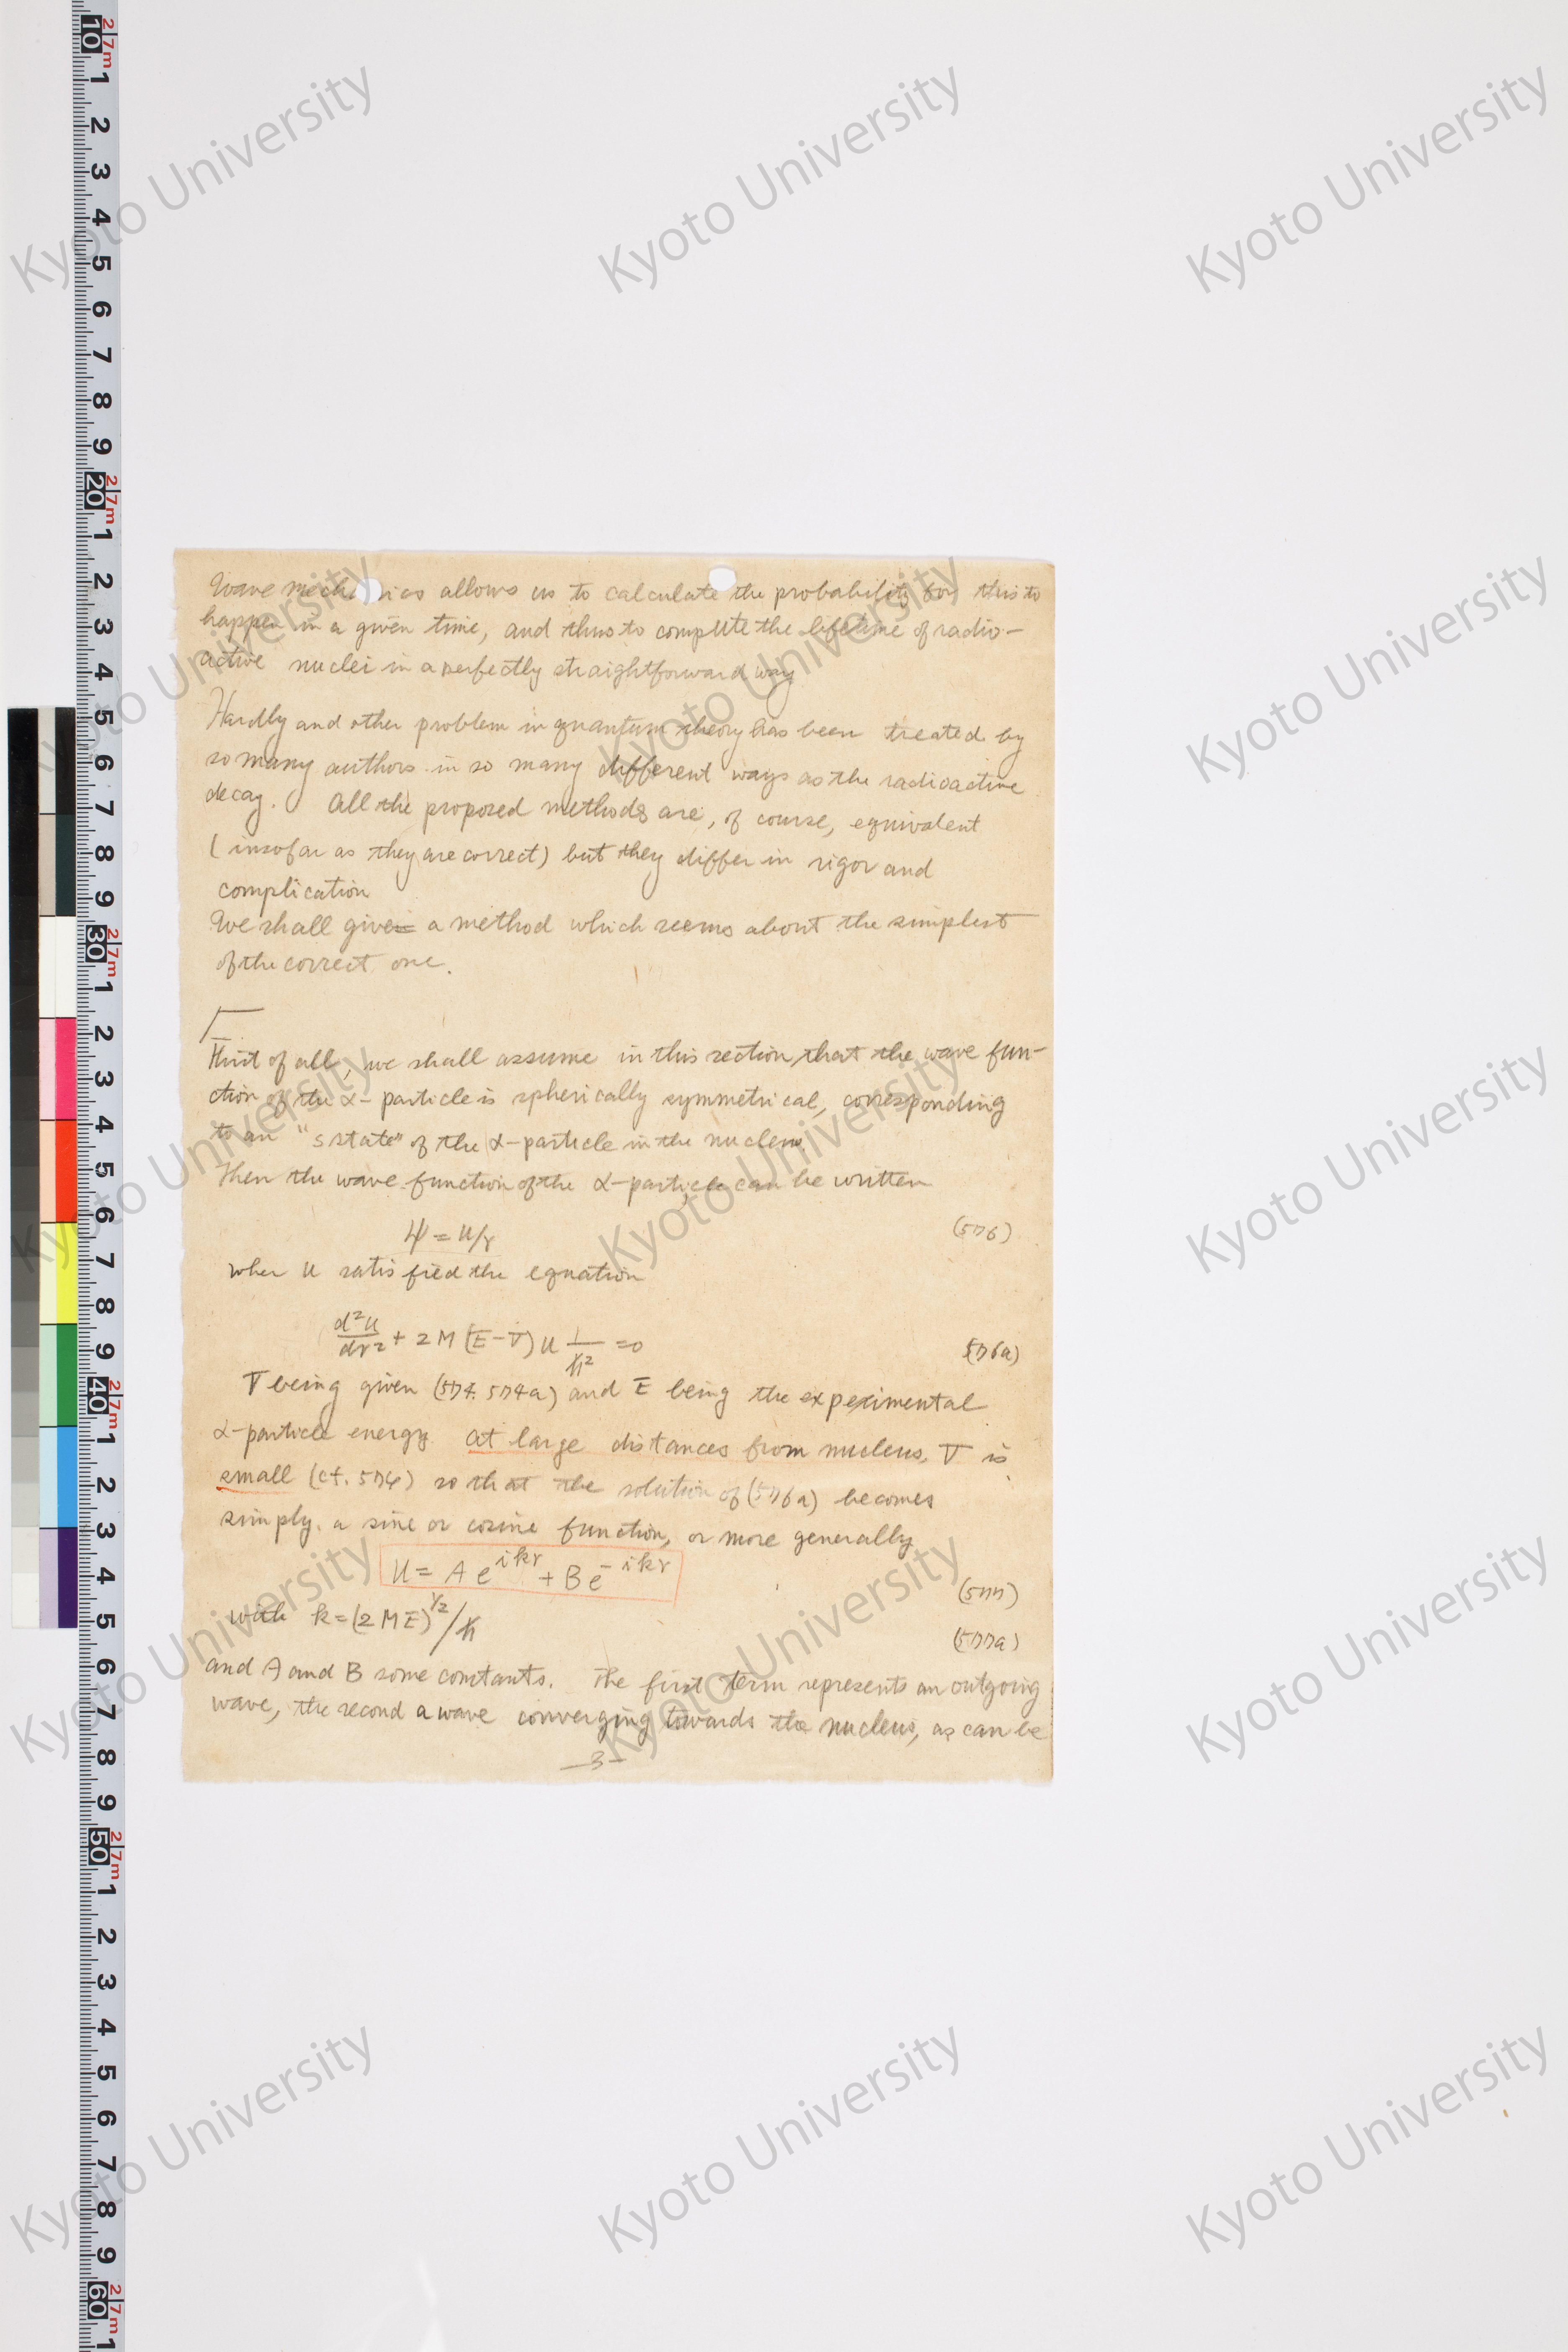 Wave mechanics allows us to calculate the probability for this to
happen in a given time, and thus to compute the lifetime of radio-
active nuclei in a perfectly straightforward way
Hardly and other problem in quantum theory has been treated by
so many authors in so many different ways as the radioactive
decay. All the proposed methods are, of course, equivalent
(insofar as they are correct) but they differ in rigor and
complication
We shall give a method which seems about the simplest
of the correct one.
First of all, we shall assume in this section, that the wave fun-
ction of the α-particle is spherically symmetrical, corresponding
to an "s state" of the α-particle in the nucleus.
Then the wave function of the α-particle can be written
ψ = u/r (576)
wher u satisfied the equation
d²u/dr² + 2M (E-V) u 1/ħ² = 0 576a)
V being given (574. 574a) and E being the experimental
α-particle energy. at large distances from nucleus, V is
small (cf. 574) so that the solution of (576a) becomes
simply. a sine or cosine function, or more generally
u = A e^{ikr} + B e^{-ikr} (577)
with k = (2ME)^{1/2}/ħ (577a)
and A and B some constants. The first term represents an outgoing
wave, the second a wave converging towards the nucleus, as can be
-3-
Kyoto University